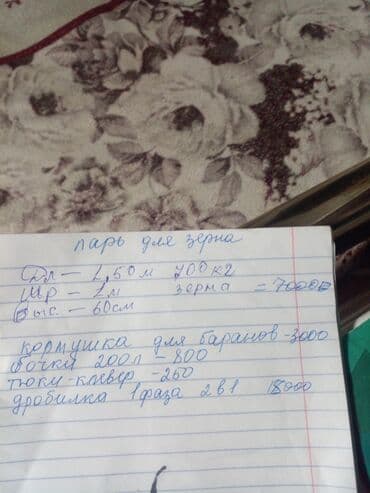 ларь для зерна
Дл - 2,50м 700кг
Шр - 2м зерна = 7000
Выс - 60см
кормушка для баранов - 3000
бочки 200л - 800
тюки - клевер - 250
дробилка 1 фаза 2в1 18000